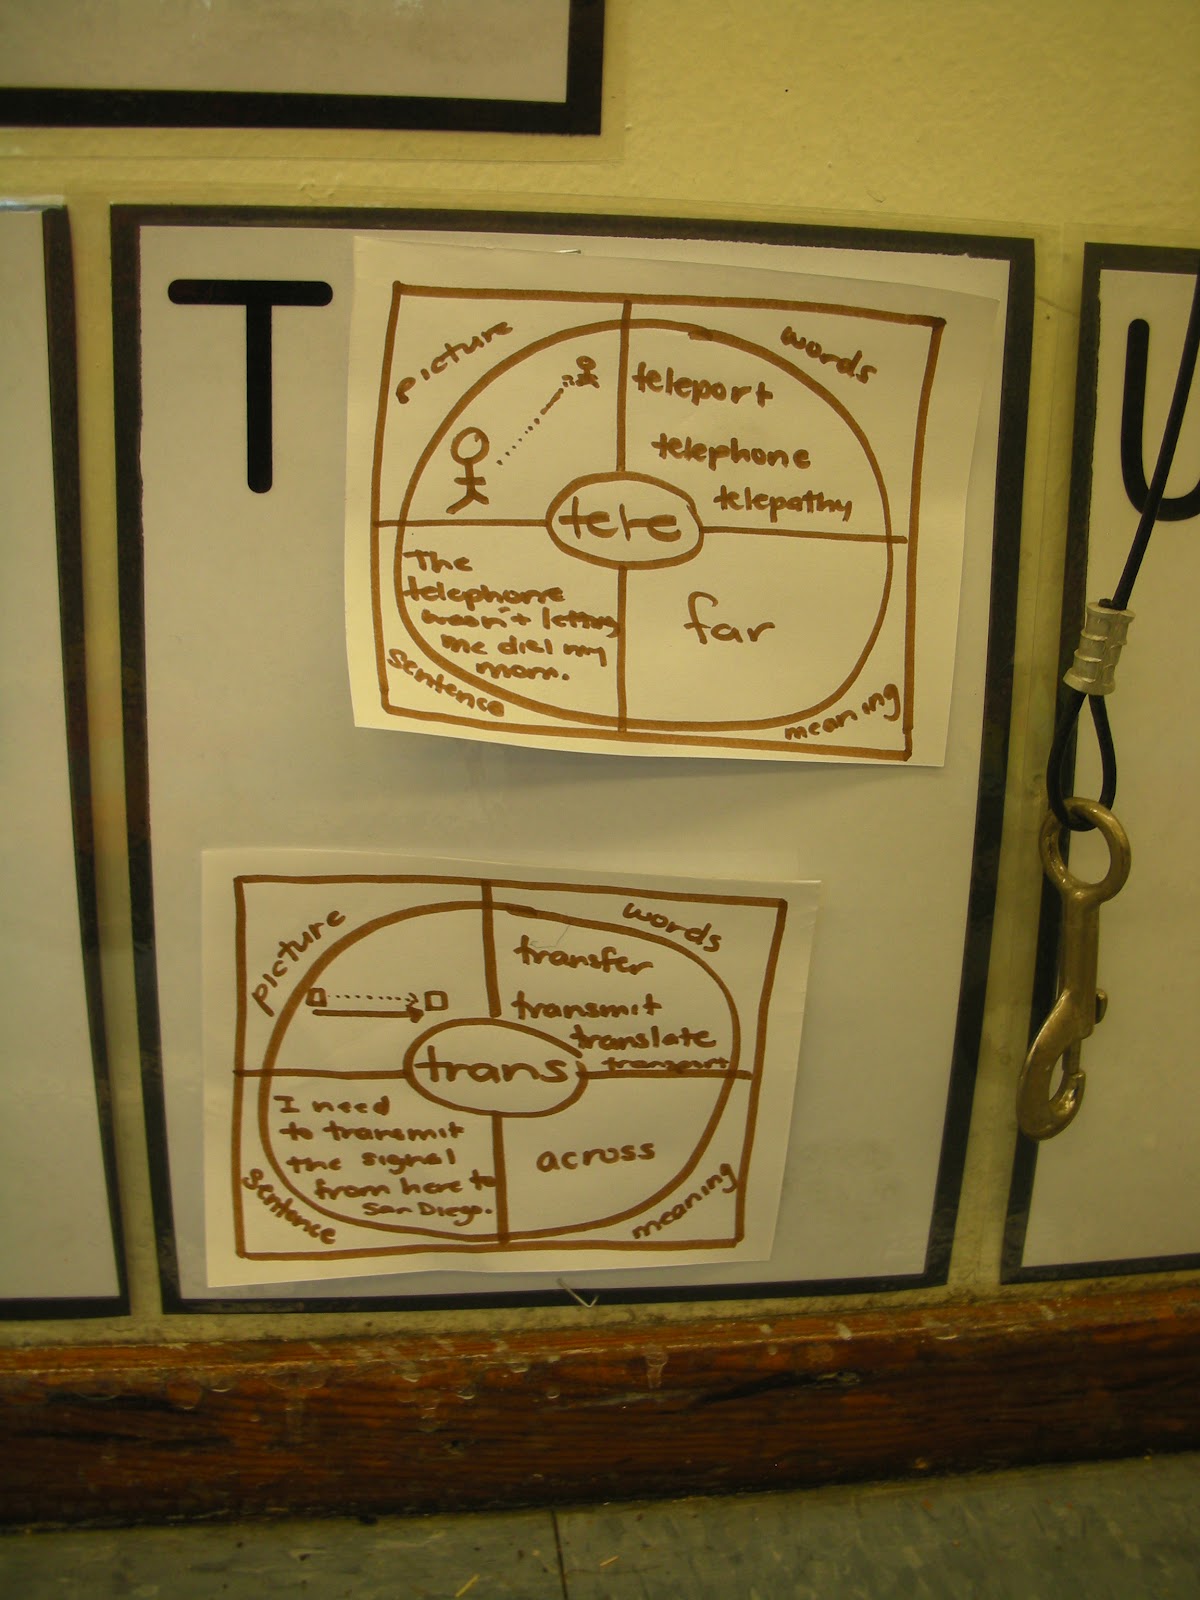 T
U
picture
words
teleport
telephone
telepathy
tele
The
telephone
wasn't letting
me dial my
mom.
far
sentence
meaning
picture
words
transfer
transmit
translate
transport
trans
I need
to transmit
the signal
from here to
San Diego.
across
sentence
meaning